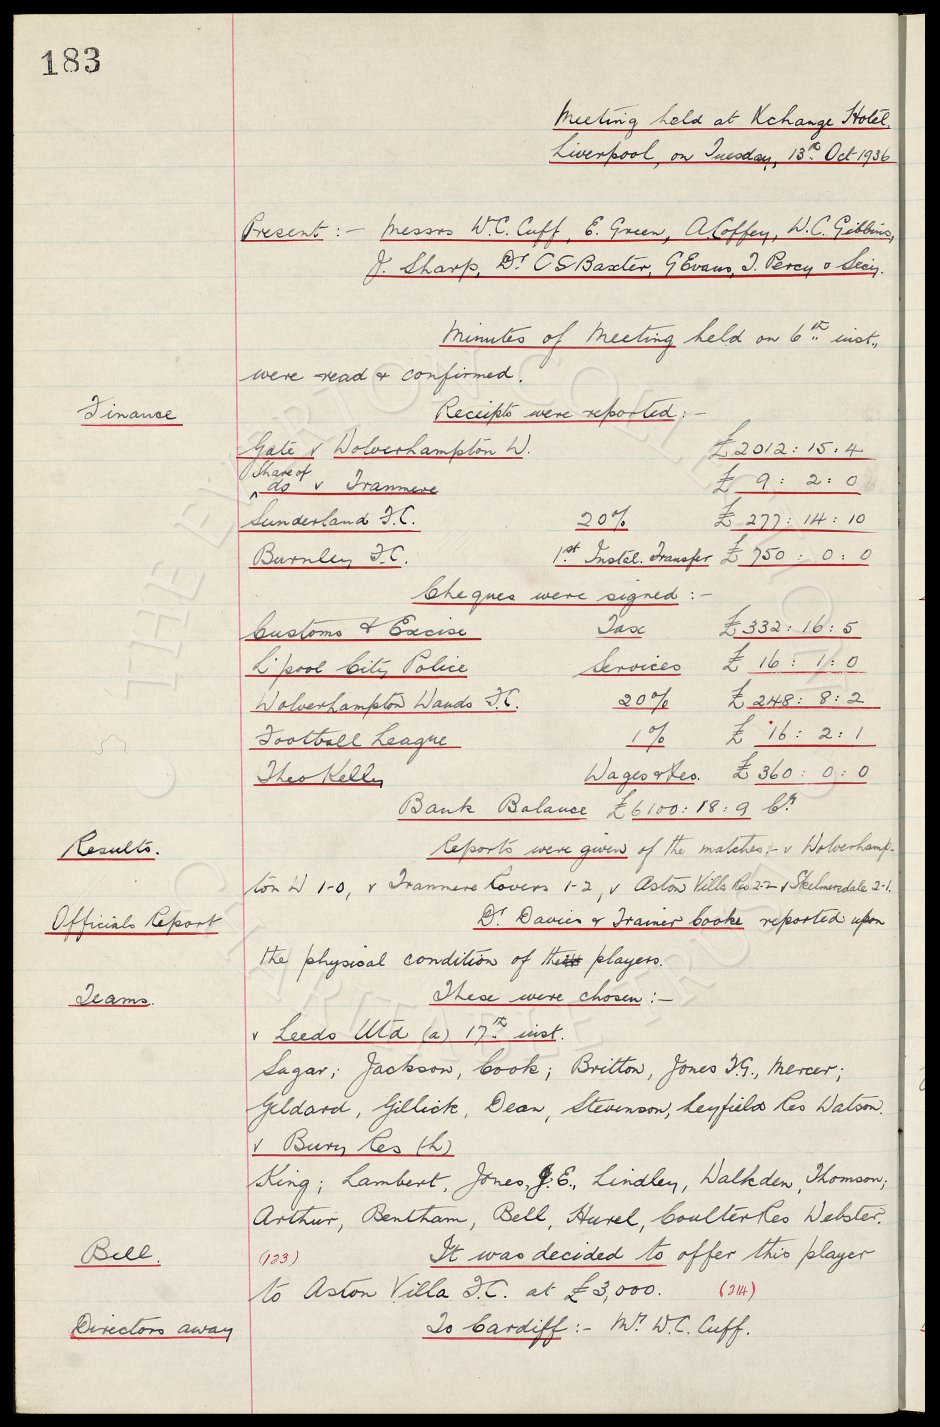 183
Meeting held at Xchange Hotel,
Liverpool, on Tuesday, 13th Oct 1936
Present :- Messrs W.C. Cuff, E. Green, A. Coffey, W.C. Gibbins,
J. Sharp, Dr C S Baxter, G Evans, T. Percy & Secy.
Minutes of Meeting held on 6th inst.,
were read & confirmed.
Finance Receipts were reported :-
Gate v Wolverhampton W. £2012 : 15 : 4
Share of
^ do v Tranmere £ 9 : 2 : 0
Sunderland F.C. 20% £ 277 : 14 : 10
Burnley F.C. 1st Instal. Transfer £ 750 : 0 : 0
Cheques were signed :-
Customs & Excise Tax £332 : 16 : 5
L'pool City Police Services £ 16 : 1 : 0
Wolverhampton Wands F.C. 20% £ 248 : 8 : 2
Football League 1% £ 16 : 2 : 1
Theo Kelly Wages & Xes. £ 360 : 0 : 0
Bank Balance £6100 : 18 : 9 Cr.
Results. Reports were given of the matches :- v Wolverhamp-
ton W 1-0, v Tranmere Rovers 1-2, v Aston Villa Res 2-2 v Skelmersdale 2-1.
Officials Report Dr. Davies & Trainer Cooke reported upon
the physical condition of the players.
Teams. These were chosen :-
v Leeds Utd (a) 17th inst.
Sagar; Jackson, Cook; Britton, Jones T.G., Mercer;
Geldard, Gillick, Dean, Stevenson, Leyfield Res Watson.
v Bury Res (h)
King; Lambert, Jones, J.E., Lindley, Walkden, Thomson;
Arthur, Bentham, Bell, Hurel, Coulter Res Webster.
Bell. (123) It was decided to offer this player
to Aston Villa F.C. at £3,000. (214)
Directors away To Cardiff :- Mr. W.C. Cuff.